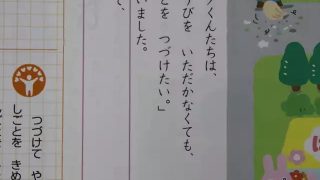 くんたちは、
すびを いただかなくても、
とを つづけたい。」
いました。
て、
つづけて や
しごとを きめ
は